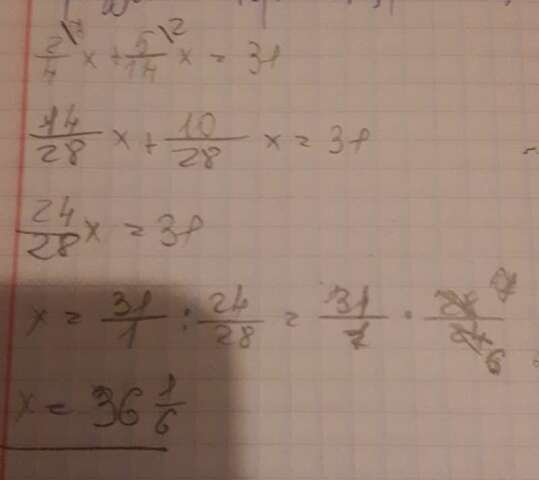 2/4 \7 x + 5/14 \2 x = 31
14/28 x + 10/28 x = 31
24/28 x = 31
x = 31/1 : 24/28 = 31/1 · 28/24 7 6
x = 36 1/6